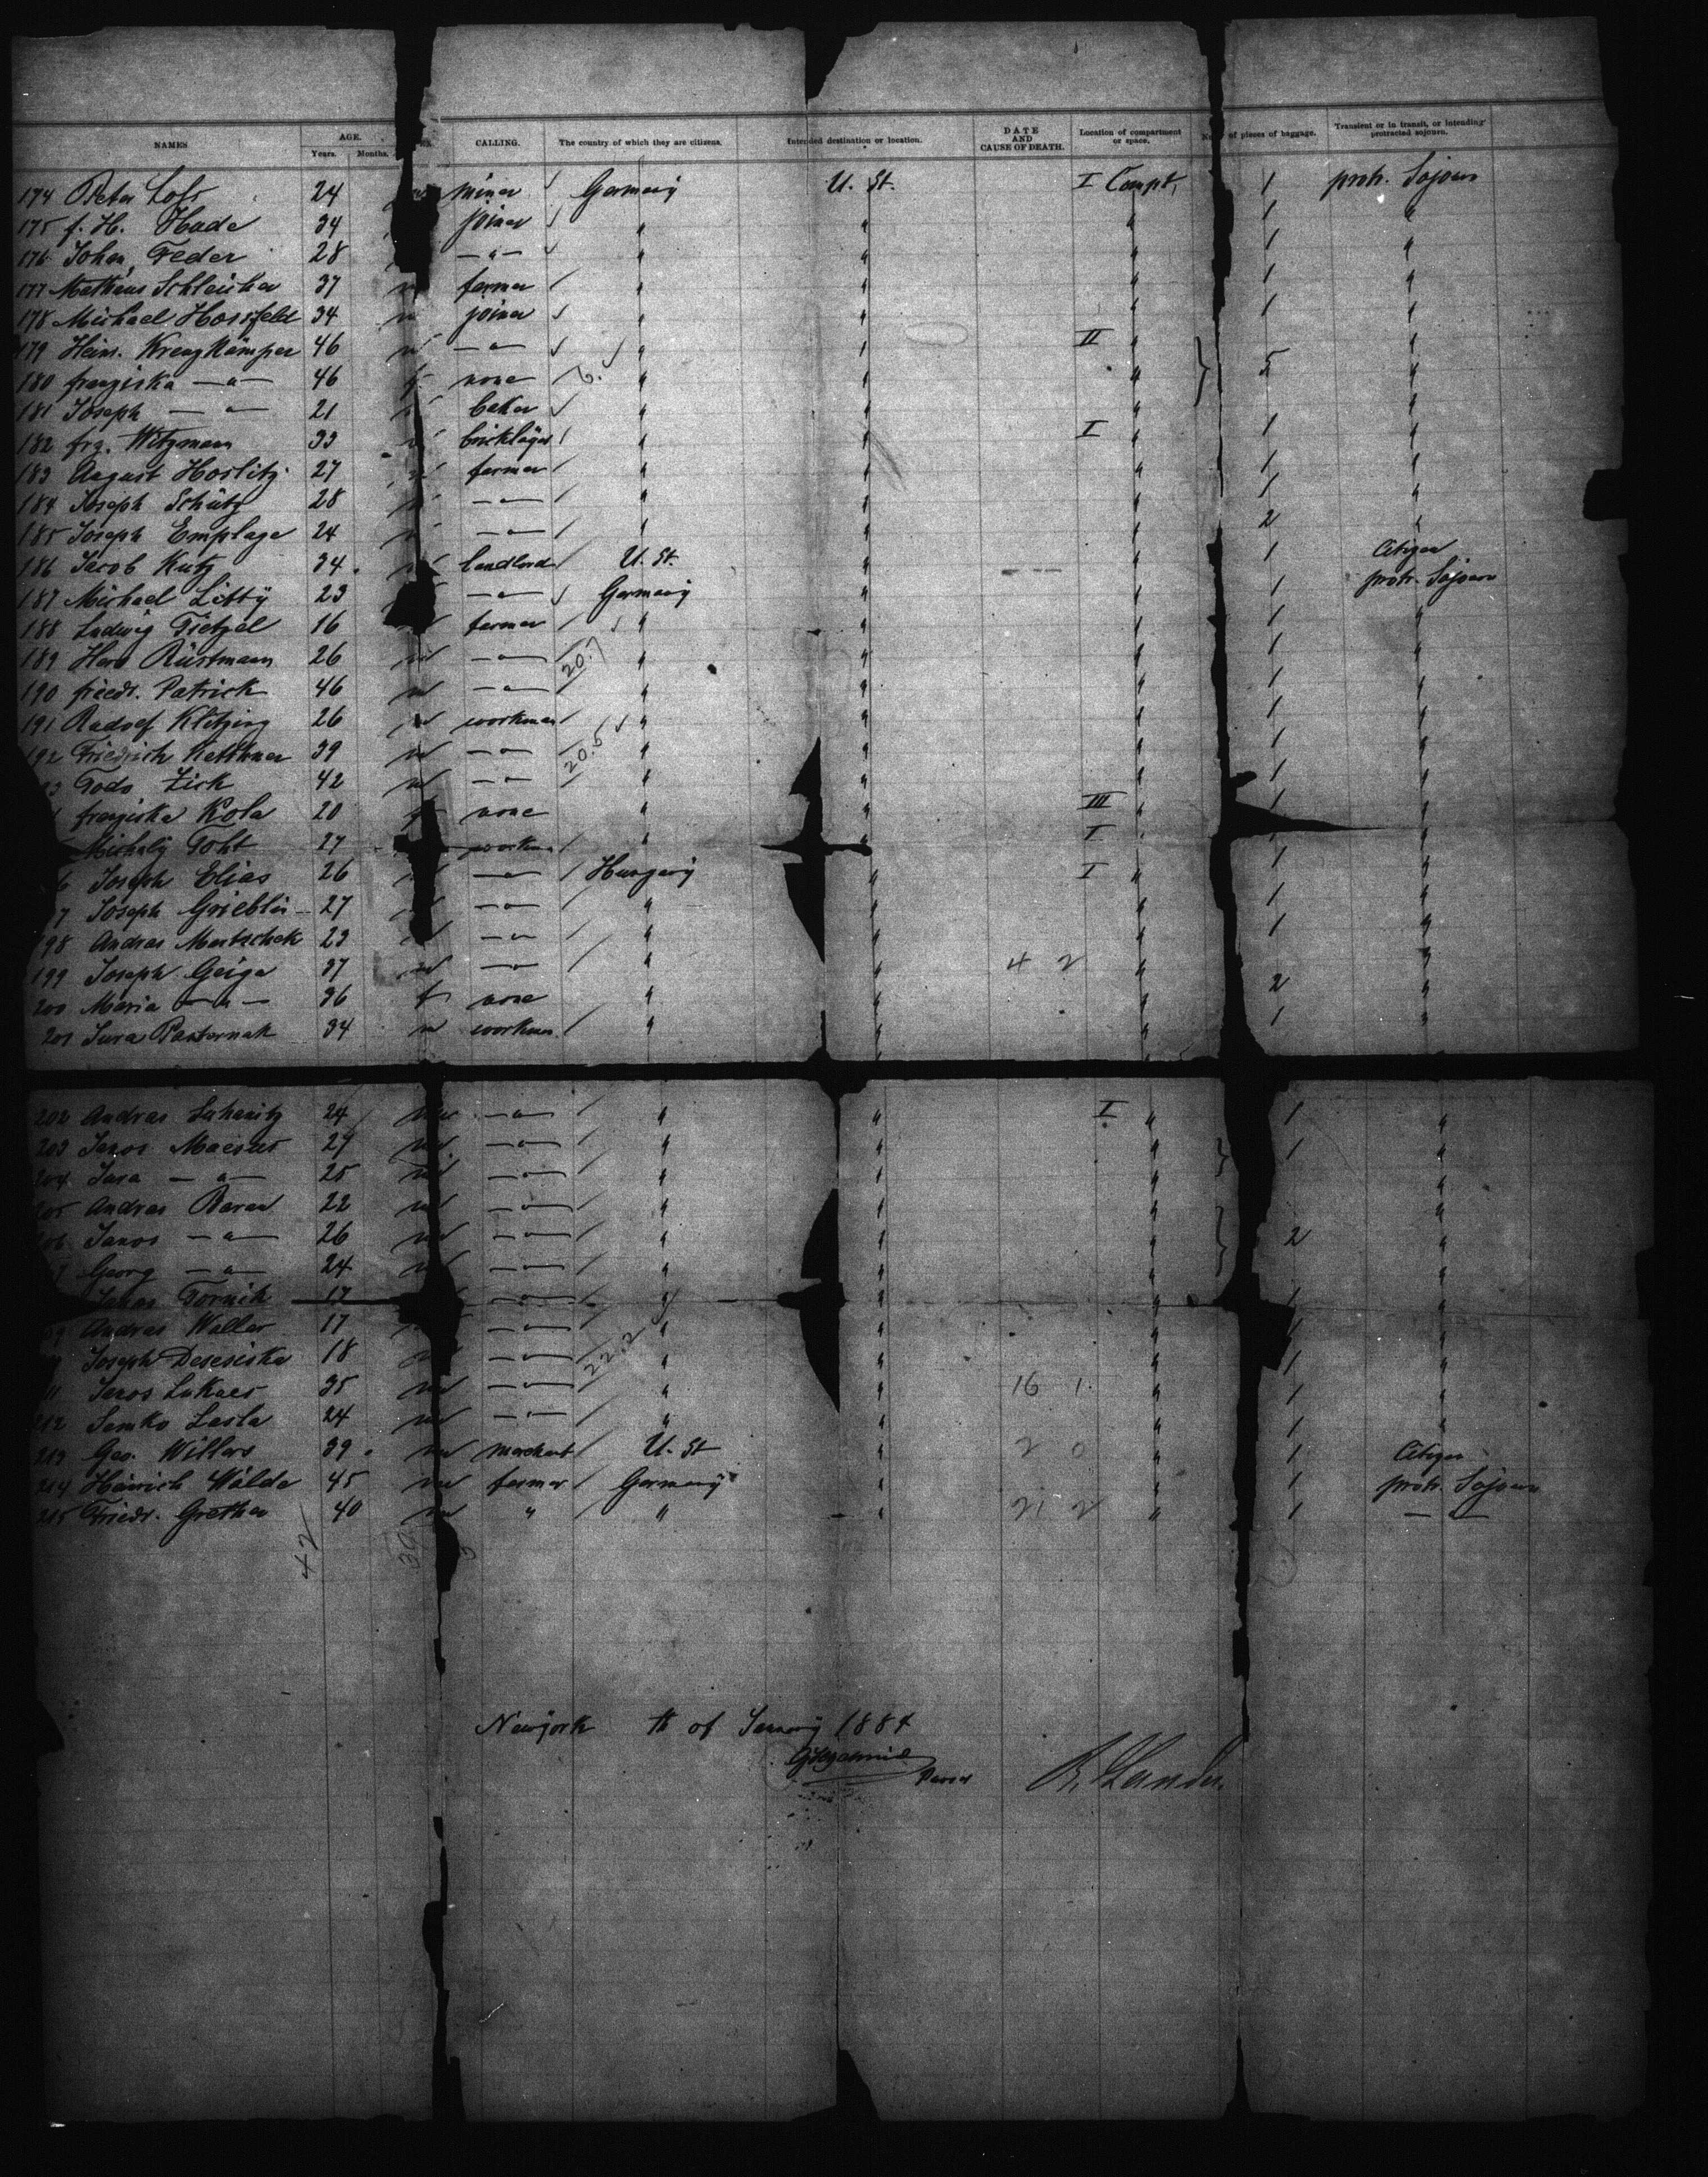 NAMES AGE. Years. Months. CALLING. The country of which they are citizens. Intended destination or location. DATE AND CAUSE OF DEATH. Location of compartment or space. of pieces of baggage. Transient or in transit, or intending protracted sojourn.
174 Peter 24 miner Germany U. St. I Compt. 1 protr. Sojourn
175 f. H. Hade 34 joiner " " " 1 "
176 Johan Feder 28 —"— " " " 1 "
177 Mathäus Schleicher 37 m farmer " " " 1 "
178 Michael Hossfeld 34 m joiner " " " 1 "
179 Heinr. Kreuzkämper 46 m —"— " " II " "
180 franziska —"— 46 f none " " " 5 "
181 Joseph —"— 21 baker " " " "
182 frz. Witzmann 33 bricklayer " " I " 1 "
183 August Hoslitz 27 farmer " " " 1 "
184 Joseph Schütz 28 —"— " " " 1 "
185 Joseph Emplage 24 —"— " " " 2 "
186 Jacob Kutz 34 landlord U. St. " " 1 Citizen
187 Michael Litty 23 —"— Germany " " 1 protr. Sojourn
188 Ludwig Tietzel 16 farmer " " " 1 "
189 Herm Rüstmann 26 m —"— 20.7 " " " 1 "
190 friedr. Patrick 46 m —"— " " " 1 "
191 Rudolf Klitzing 26 m workman " " " 1 "
192 Friedrich Kettkner 39 m —"— 20.5 " " " 1 "
Todo. Zick 42 m —"— " " " 1 "
franziska Kola 20 f none " " III " 1 "
Michaly Toht 27 workman " " I 1 "
6 Joseph Elias 26 —"— Hungary " I " 1 "
7 Joseph 27 —"— " " " 1 "
198 Andras Martschek 23 —"— " " " 1 "
199 Joseph Geiga 37 m —"— " " 4 2 " "
200 Maria —"— 36 f none " " " 2 "
201 Jura Pasternak 34 m workman " " " 1 "
202 Andras 24 m —"— " " I " 1 "
203 Janos 29 m —"— " " " 1 "
204 Jura —"— 25 m —"— " " " "
205 Andras Baran 22 m —"— " " " "
206 Janos —"— 26 m —"— " " " 2 "
7 Georg —"— 24 m —"— " " " "
Janos Tornik 17 —"— " " " 1 "
09 Andras Waller 17 —"— " " " 1 "
Joseph 18 m —"— 22.2 " " " 1 "
11 Janos Lukacs 35 m —"— " " 16 1 " 1 "
212 Semko Lasla 24 m —"— " " " 1 "
213 Geo. Willers 39 m merchant U. St " 2 0 " 1 Citizen
214 Heinrich Wälde 45 m farmer Germany " " 1 protr. Sojourn
215 Friedr. Grether 40 m " " " 21 2 " 1 —"—
42
Newyork th of January 1884